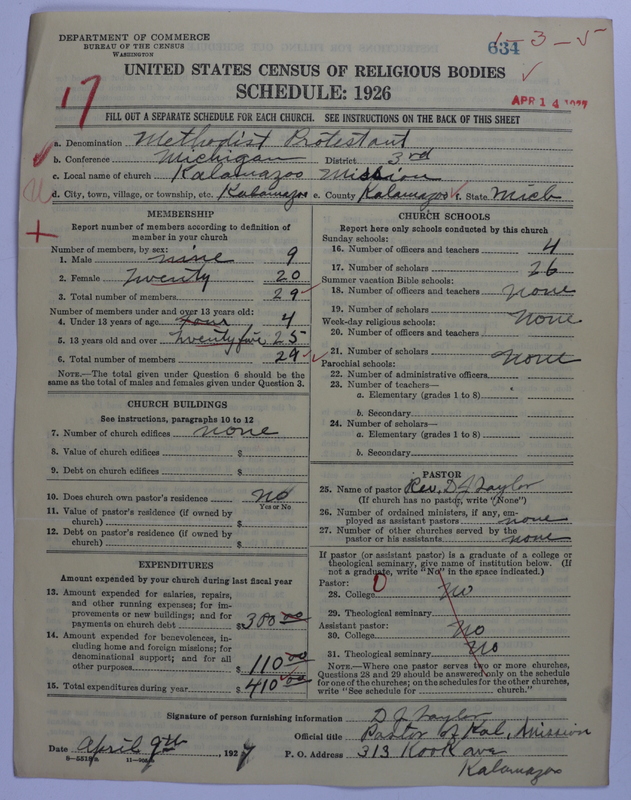 DEPARTMENT OF COMMERCE
BUREAU OF THE CENSUS
WASHINGTON
634
1-3-5
UNITED STATES CENSUS OF RELIGIOUS BODIES
SCHEDULE: 1926
17
APR 14 1927
FILL OUT A SEPARATE SCHEDULE FOR EACH CHURCH. SEE INSTRUCTIONS ON THE BACK OF THIS SHEET
a. Denomination Methodist Protestant
b. Conference Michigan District 3rd
c. Local name of church Kalamazoo Mission
d. City, town, village, or township, etc. Kalamazoo e. County Kalamazoo f. State Mich
MEMBERSHIP
Report number of members according to definition of
member in your church
Number of members, by sex:
1. Male nine 9
2. Female Twenty 20
3. Total number of members 29
Number of members under and over 13 years old:
4. Under 13 years of age four 4
5. 13 years old and over Twenty five 25
6. Total number of members 29
NOTE.—The total given under Question 6 should be the
same as the total of males and females given under Question 3.
CHURCH BUILDINGS
See instructions, paragraphs 10 to 12
7. Number of church edifices none
8. Value of church edifices $
9. Debt on church edifices $
10. Does church own pastor's residence No
Yes or No
11. Value of pastor's residence (if owned by
church) $
12. Debt on pastor's residence (if owned by
church) $
EXPENDITURES
Amount expended by your church during last fiscal year
13. Amount expended for salaries, repairs,
and other running expenses; for im-
provements or new buildings; and for
payments on church debt $300 00
14. Amount expended for benevolences, in-
cluding home and foreign missions; for
denominational support; and for all
other purposes $110 00
15. Total expenditures during year $410 00
CHURCH SCHOOLS
Report here only schools conducted by this church
Sunday schools:
16. Number of officers and teachers 4
17. Number of scholars 26
Summer vacation Bible schools:
18. Number of officers and teachers none
19. Number of scholars none
Week-day religious schools:
20. Number of officers and teachers
21. Number of scholars none
Parochial schools:
22. Number of administrative officers
23. Number of teachers—
a. Elementary (grades 1 to 8)
b. Secondary
24. Number of scholars—
a. Elementary (grades 1 to 8)
b. Secondary
PASTOR
25. Name of pastor Rev. D J Taylor
(If church has no pastor, write "None")
26. Number of ordained ministers, if any, em-
ployed as assistant pastors none
27. Number of other churches served by the
pastor or his assistants none
If pastor (or assistant pastor) is a graduate of a college or
theological seminary, give name of institution below. (If
not a graduate, write "No" in the space indicated.)
Pastor:
28. College 0 No
29. Theological seminary
Assistant pastor:
30. College No
31. Theological seminary No
NOTE.—Where one pastor serves two or more churches,
Questions 28 and 29 should be answered only on the schedule
for one of the churches; on the schedules for the other churches,
write "See schedule for church."
Signature of person furnishing information D J Taylor
Official title Pastor of Kal, Mission
Date April 9th, 1927 P. O. Address 313 Kook ave
Kalamazoo